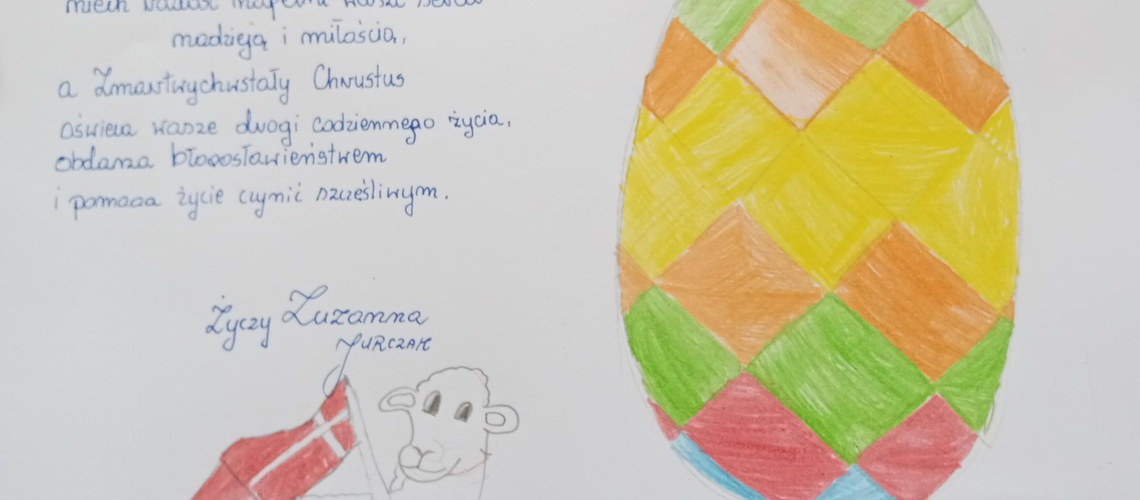 niech radość napełni wasze serca
nadzieją i miłością,
a Zmartwychwstały Chrustus
oświeca wasze drogi codziennego życia,
obdarza błogosławieństwem
i pomaga życie czynić szczęśliwym.
Życzy Zuzanna
JURCZAK